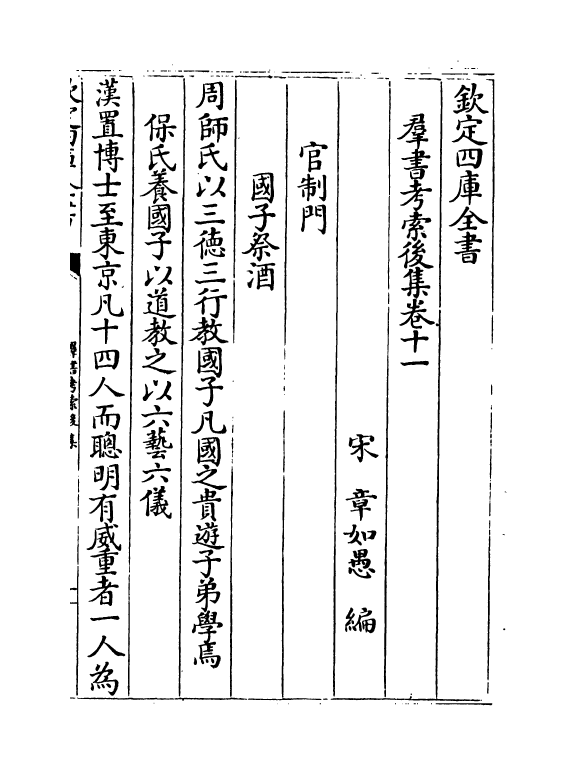 欽定四庫全書
羣書考索後集卷十一
宋 章如愚 編
官制門
國子祭酒
周師氏以三德三行教國子凡國之貴遊子弟學焉
保氏養國子以道教之以六藝六儀
漢置博士至東京凡十四人而聰明有威重者一人為
羣書考索後集